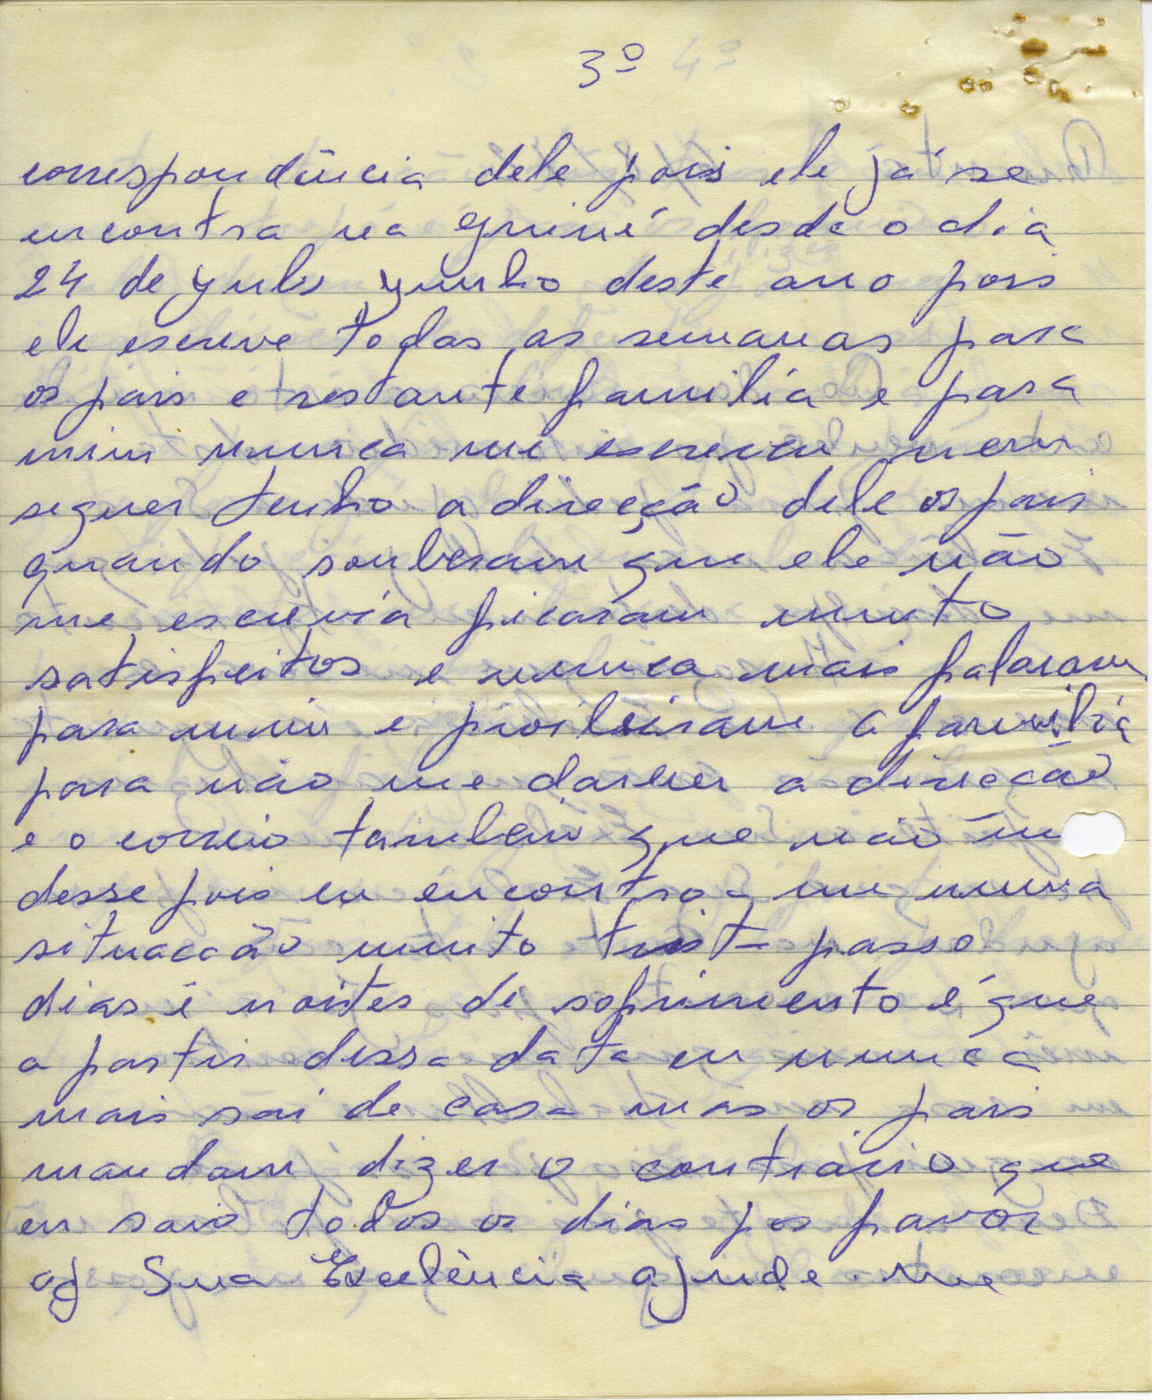 3º
correspondência dele pois ele já se
encontra na Guiné desde o dia
24 de yulo yunho deste ano pois
ele escreve todas as semanas para
os pais e restante familia e para
mim nunca me escreveu nem
sequer tenho a direcção dele os pais
quando souberam que ele não
me escrevia ficaram muito
satisfeitos e nunca mais falaram
para mim e proibiram a familia
para não me darem a direcção
e o correio tambem que não
desse pois eu encontro-me numa
situacção muito trist- passo
dias e noites de sofrimento é que
a partir dessa data eu nunca
mais sai de casa mas os pais
mandam dizer o contrario que
eu saio todos os dias por favor
Sua Excelência ajude me